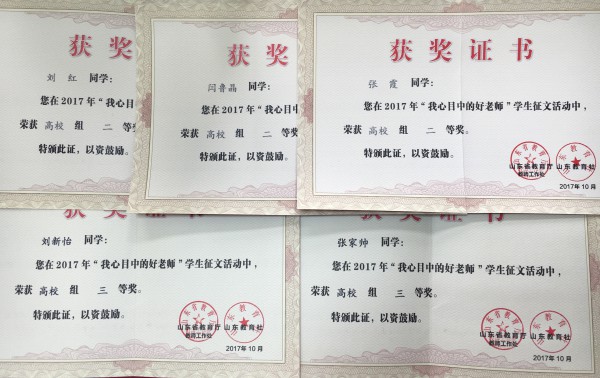 获奖
刘 红 同学：
您在2017年“我心目中
荣获 高校 组 二 等奖
特颁此证，以资鼓励。
获奖
闫鲁晶 同学：
您在2017年“我心目中
荣获 高校 组 二 等奖
特颁此证，以资鼓励。
获奖证书
张 霞 同学：
您在2017年“我心目中的好老师”学生征文活动中，
荣获 高校 组 二 等奖。
特颁此证，以资鼓励。
山东省教育厅 山东教育社
教师工作处
2017年10月
获奖证书
刘新怡 同学：
您在2017年“我心目中的好老师”学生征文活动中，
荣获 高校 组 三 等奖。
特颁此证，以资鼓励。
山东省教育厅 山东教育社
教师工作处
2017年10月
获奖证书
张家帅 同学：
您在2017年“我心目中的好老师”学生征文活动中，
荣获 高校 组 三 等奖。
特颁此证，以资鼓励。
山东省教育厅 山东教育社
教师工作处
2017年10月